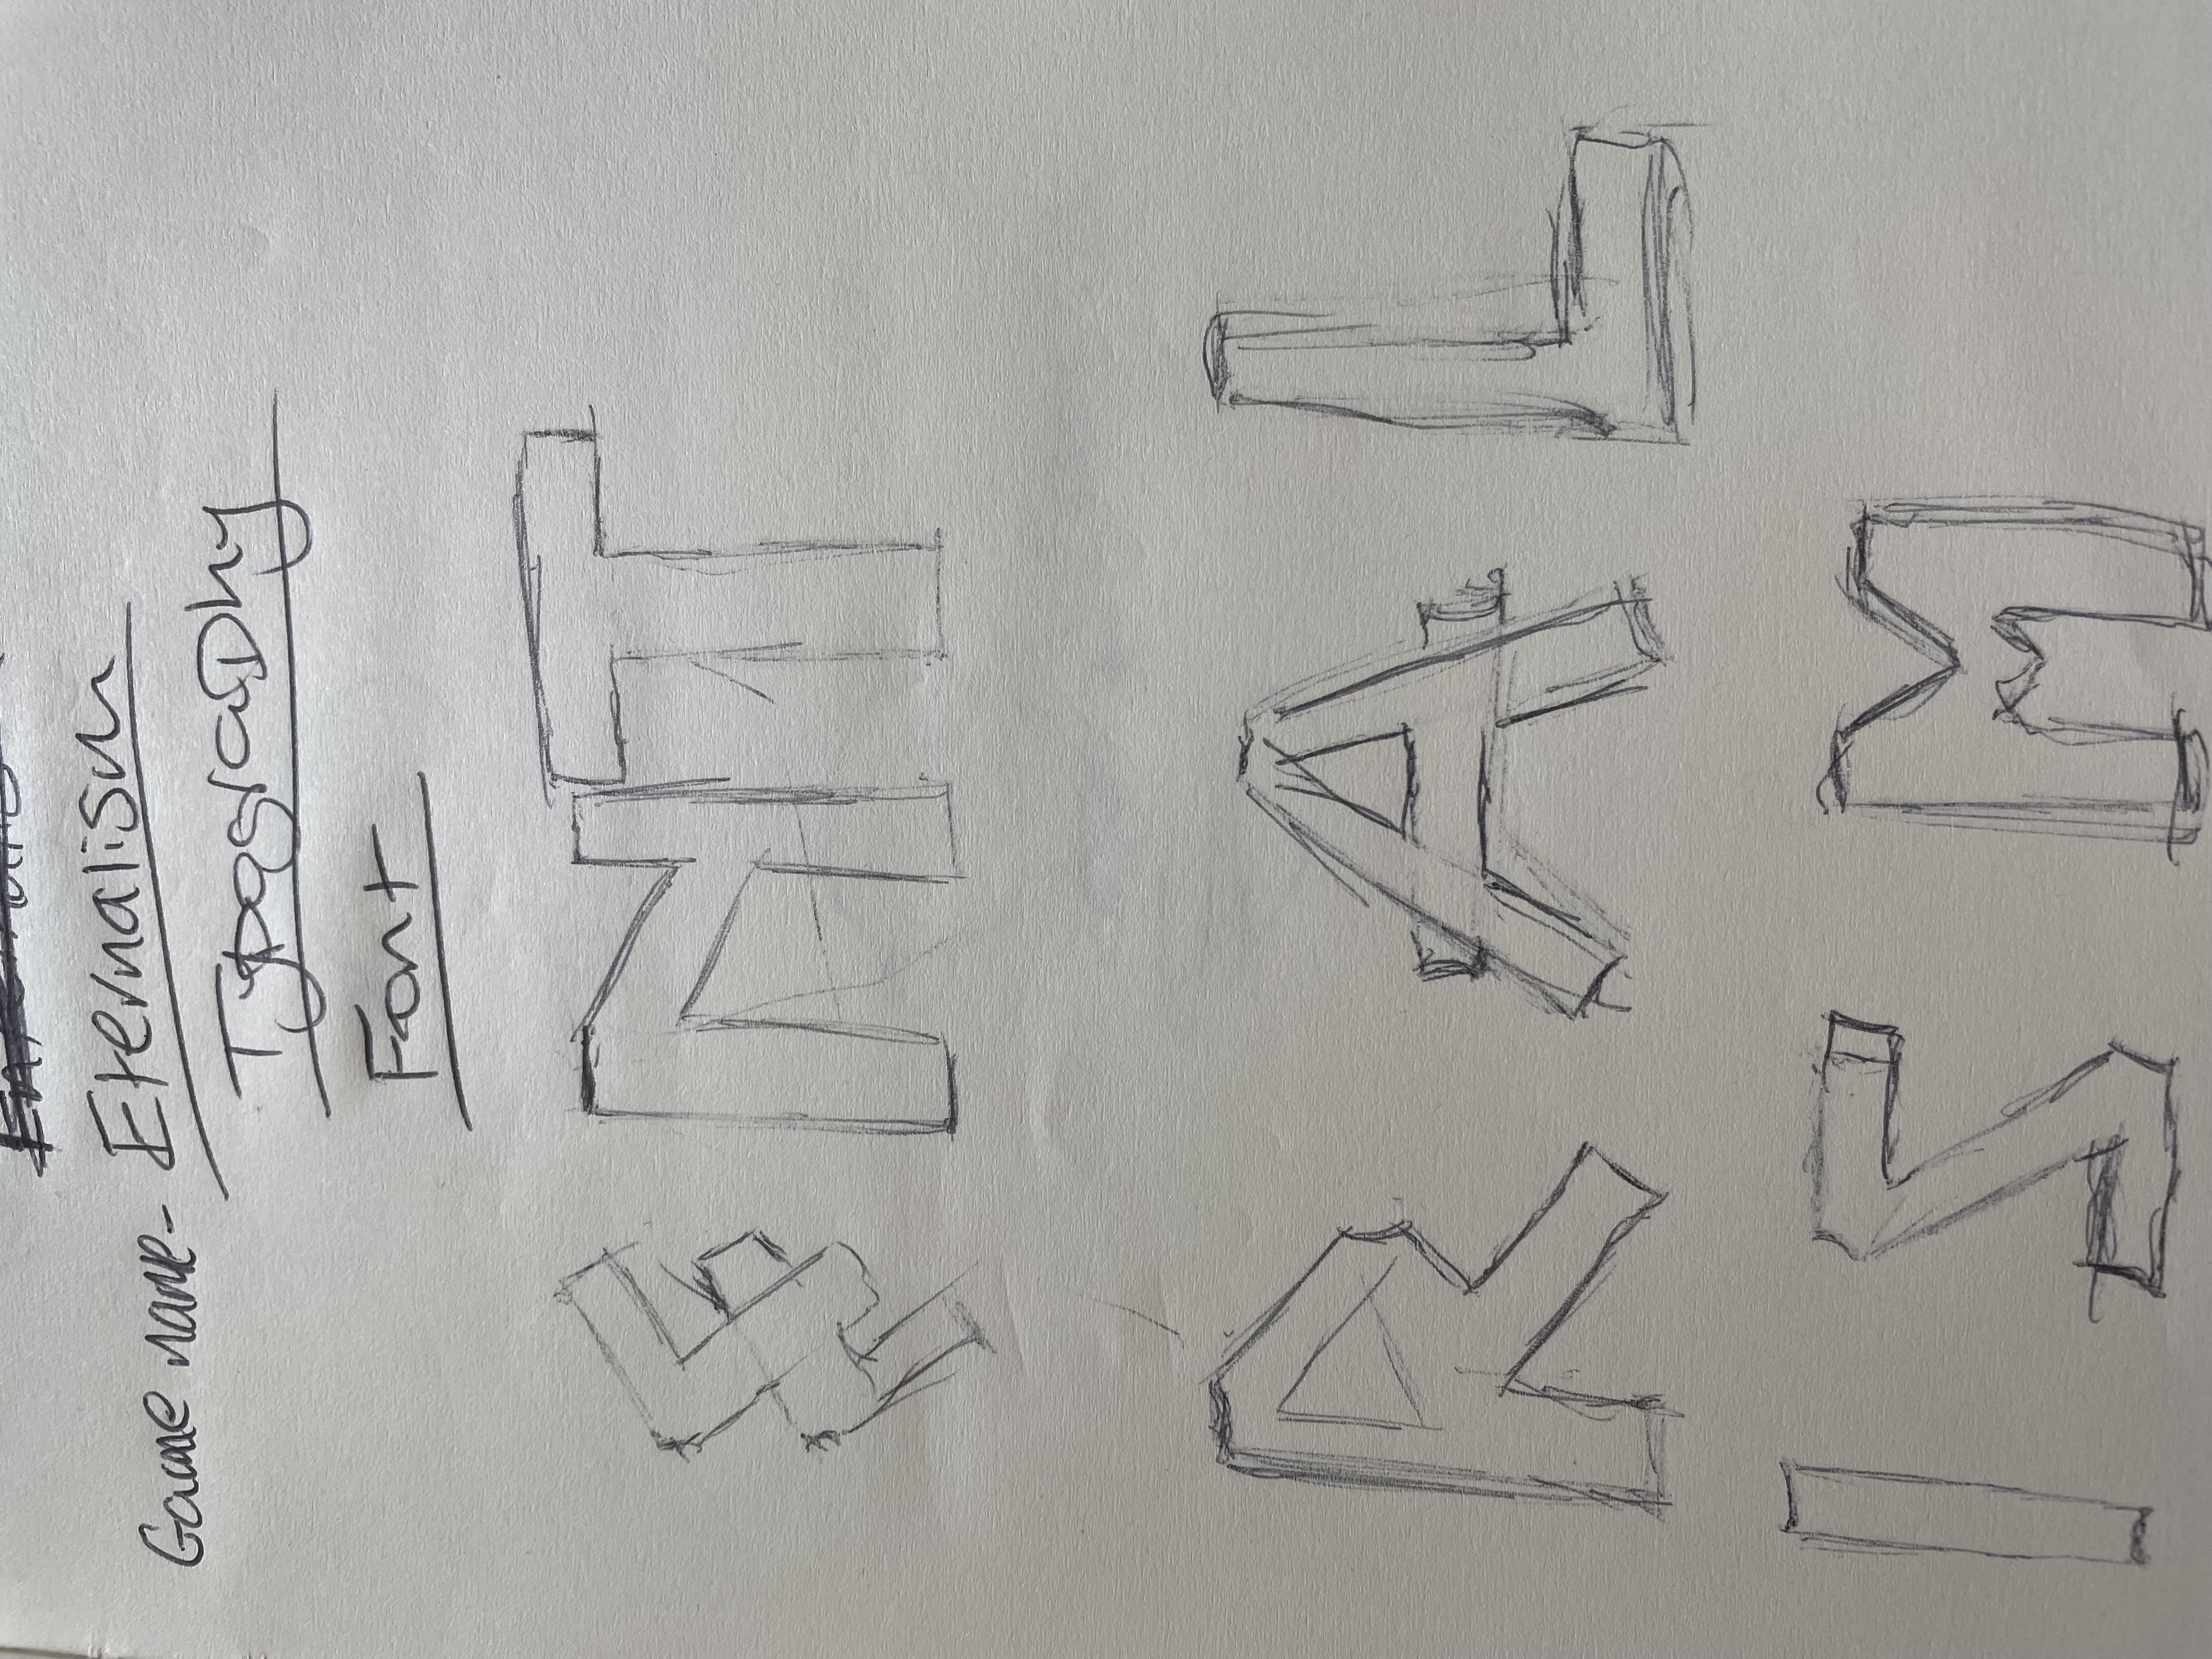 Game name- Eternalism
Typography
Font
E N T
R A L
I S M